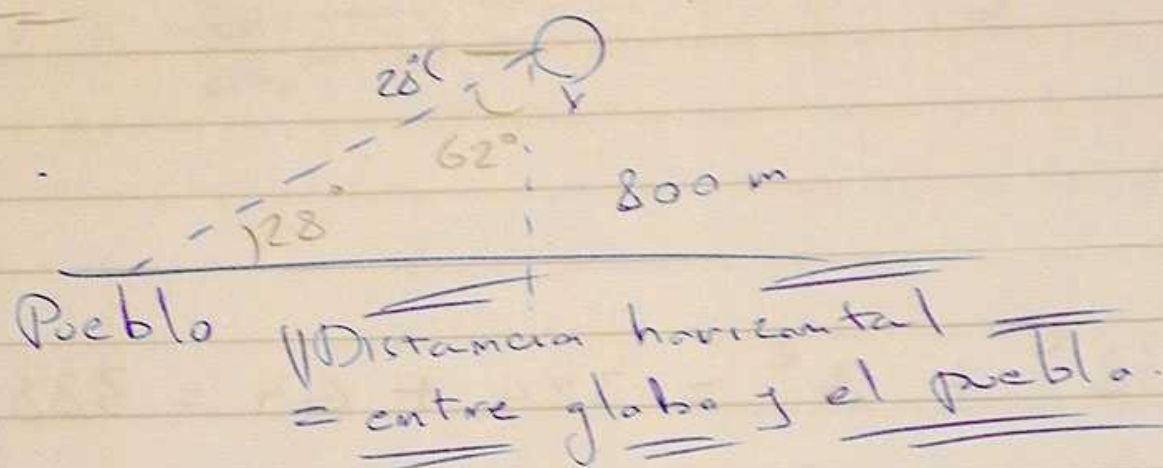 28°
62°
800 m
28°
Pueblo
Distancia horizontal
= entre globo y el pueblo.